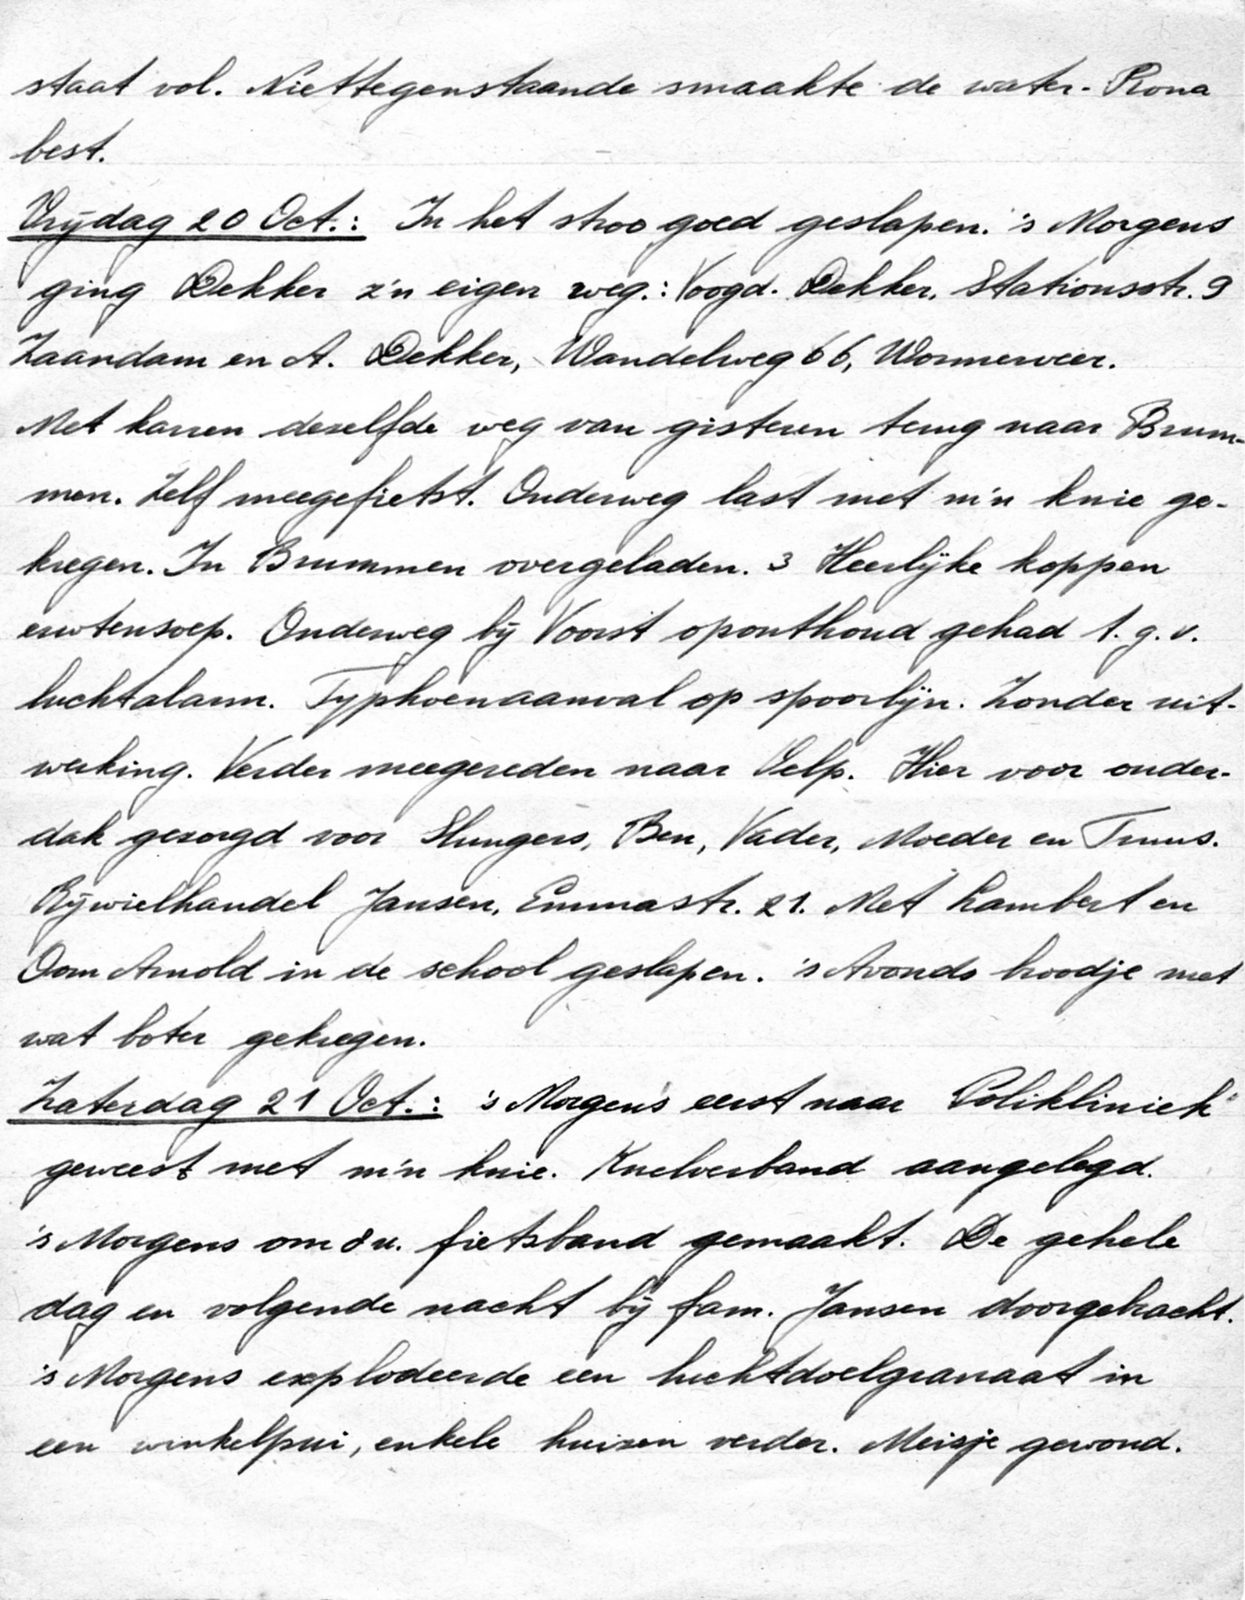 staat vol. Niettegenstaande smaakte de water-Rona
best.
Vrijdag 20 Oct.: In het stroo goed geslapen. 's Morgens
ging Dekker z'n eigen weg.: Voogd. Dekker, Stationsstr. 9
Zaandam en A. Dekker, Wandelweg 66, Wormerveer.
Met karren dezelfde weg van gisteren terug naar Brum-
men. Zelf meegefietst. Onderweg last met m'n knie ge-
kregen. In Brummen overgeladen. 3 Heerlijke koppen
erwtensoep. Onderweg bij Voorst oponthoud gehad t.g.v.
luchtalarm. Typhoenaanval op spoorlijn. Zonder uit-
werking. Verder meegereden naar Velp. Hier voor onder-
dak gezorgd voor Slungers, Ben, Vader, Moeder en Truus.
Rijwielhandel Jansen, Emmastr. 21. Met Lambert en
Oom Arnold in de school geslapen. 's Avonds broodje met
wat boter gekregen.
Zaterdag 21 Oct.: 's Morgens eerst naar Polikliniek"
geweest met m'n knie. Knelverband aangelegd.
's Morgens om 8 u. fietsband gemaakt. De gehele
dag en volgende nacht bij fam. Jansen doorgebracht.
's Morgens explodeerde een luchtdoelgranaat in
een winkelpui, enkele huizen verder. Meisje gewond.